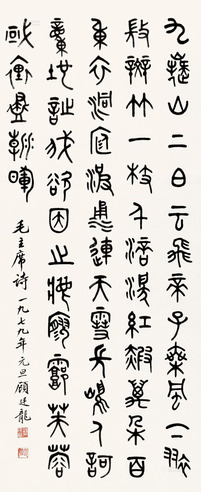 九嶷山上白云飛帝子乘風下翠
微斑竹一枝千滴淚紅霞萬朵百
重衣洞庭波涌連天雪長島人歌
動地詩我欲因之夢寥廓芙蓉
國裏盡朝暉
毛主席詩 一九七九年元旦顧廷龍